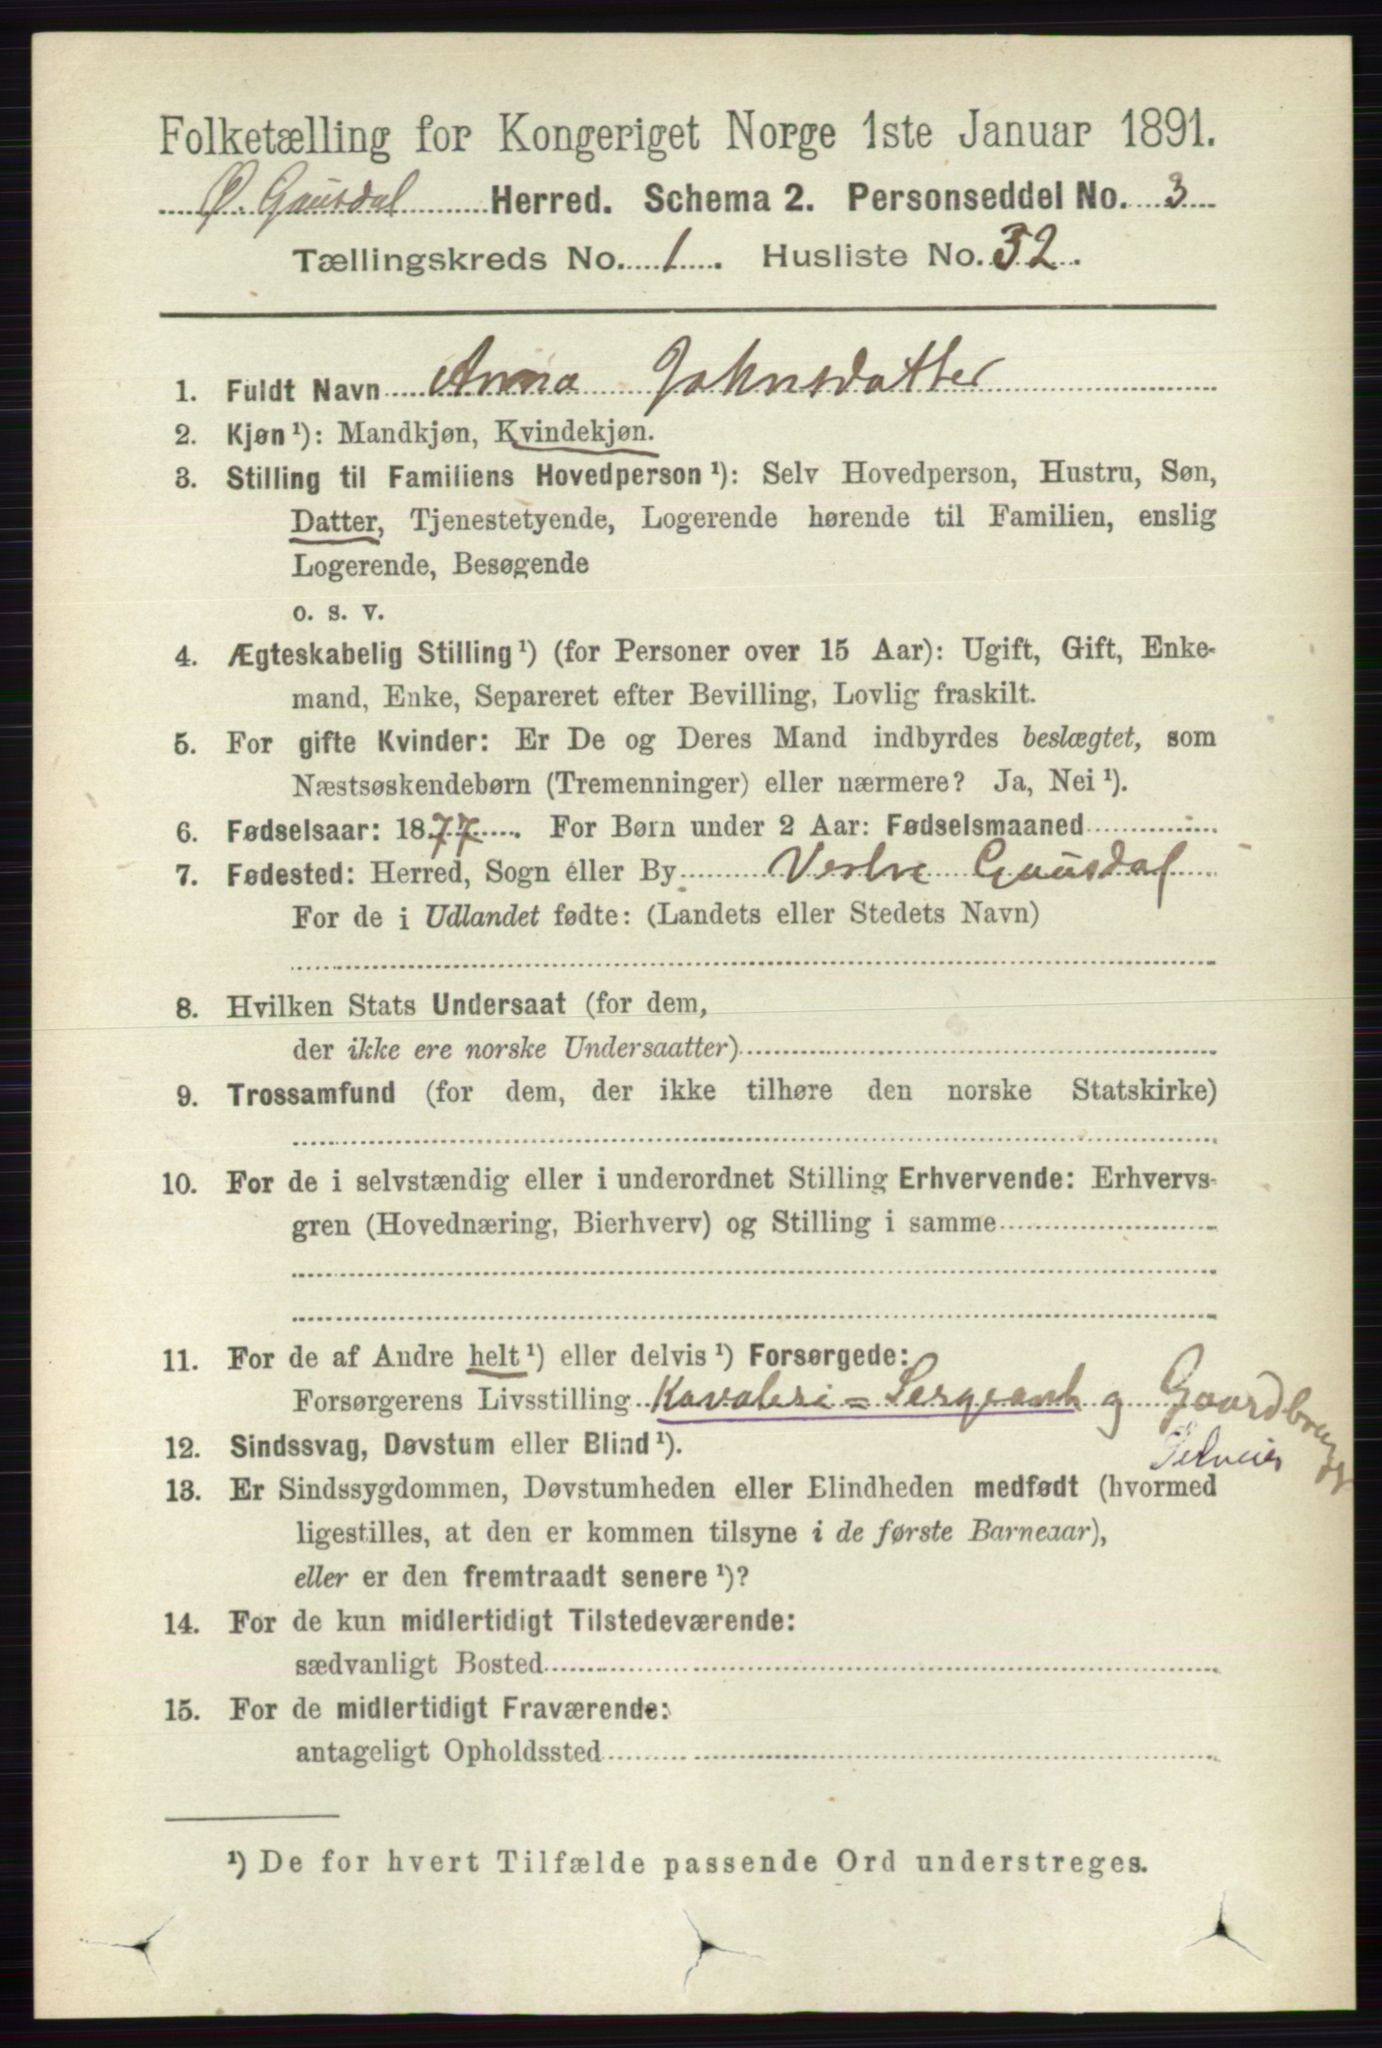 Folketælling for Kongeriget Norge 1ste Januar 1891.
Ø. Gausdal Herred. Schema 2. Personseddel No. 3
Tællingskreds No. 1. Husliste No. 32.
1. Fuldt Navn Anna Johnsdatter
2. Kjøn ¹): Mandkjøn, Kvindekjøn.
3. Stilling til Familiens Hovedperson ¹): Selv Hovedperson, Hustru, Søn,
Datter, Tjenestetyende, Logerende hørende til Familien, enslig
Logerende, Besøgende
o. s. v.
4. Ægteskabelig Stilling ¹) (for Personer over 15 Aar): Ugift, Gift, Enke-
mand, Enke, Separeret efter Bevilling, Lovlig fraskilt.
5. For gifte Kvinder: Er De og Deres Mand indbyrdes beslægtet, som
Næstsøskendebørn (Tremenninger) eller nærmere? Ja, Nei ¹).
6. Fødselsaar: 1877. For Børn under 2 Aar: Fødselsmaaned
7. Fødested: Herred, Sogn eller By Vestre Gausdal
For de i Udlandet fødte: (Landets eller Stedets Navn)
8. Hvilken Stats Undersaat (for dem,
der ikke ere norske Undersaatter)
9. Trossamfund (for dem, der ikke tilhøre den norske Statskirke)
10. For de i selvstændig eller i underordnet Stilling Erhvervende: Erhvervs-
gren (Hovednæring, Bierhverv) og Stilling i samme
11. For de af Andre helt ¹) eller delvis ¹) Forsørgede:
Forsørgerens Livsstilling Kavaleri = Sergeant og Gaardbruger
Selveier
12. Sindssvag, Døvstum eller Blind ¹).
13. Er Sindssygdommen, Døvstumheden eller Blindheden medfødt (hvormed
ligestilles, at den er kommen tilsyne i de første Barneaar),
eller er den fremtraadt senere ¹)?
14. For de kun midlertidigt Tilstedeværende:
sædvanligt Bosted
15. For de midlertidigt Fraværende:
antageligt Opholdssted
¹) De for hvert Tilfælde passende Ord understreges.